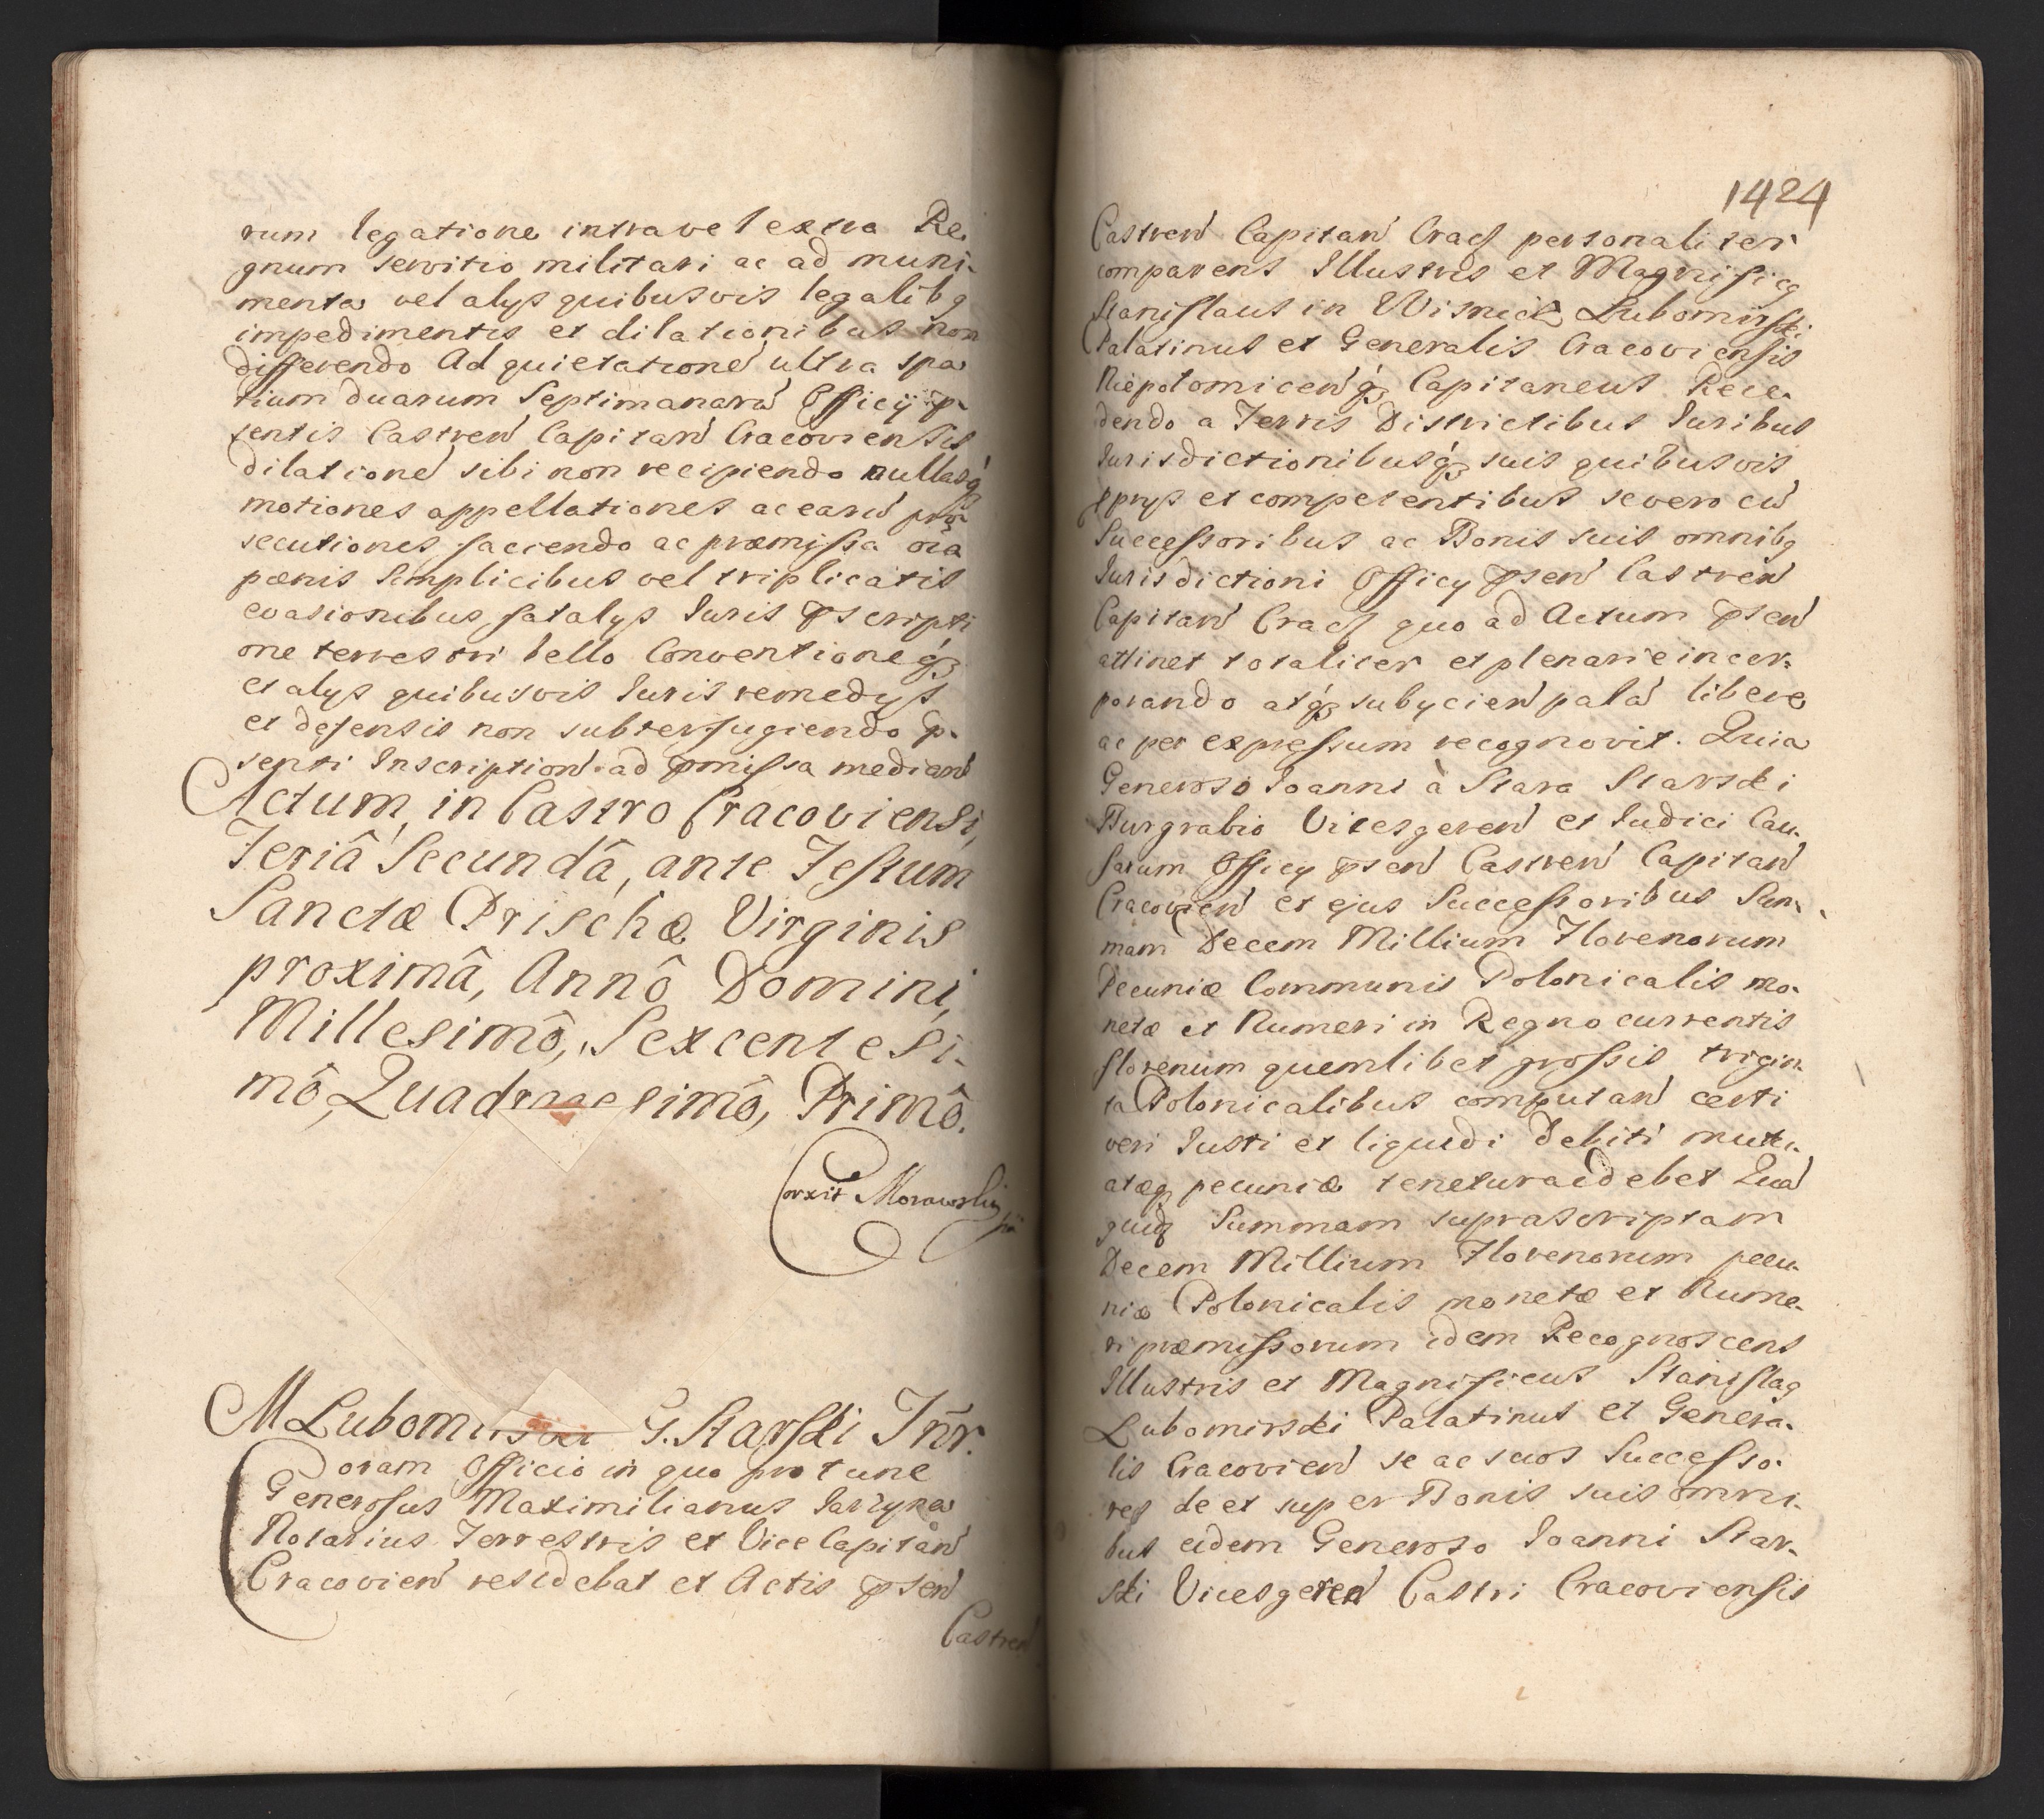 rum legatione intra vel extra Re-
gnum servitio militari ac ad muni-
menta vel alys quibusvis legalibq
impedimentis et dilationibus non
differendo Ad quietationé ultra spa
tium duarum Septimanarú Officÿ p-
sentis Castreń Capitań Cracoviensis
dilationé sibi non recipiendo nullasq́
motiones appellationes ac earú pro-
secutiones faciendo ac præmissa oia
pœnis simplicibus vel triplicatis
evasionibus fatalys Iuris pscripti
one terrestri bello Conventioneq́
et alys quibusvis Iuris remedys
et defensis non subterfugiendo p-
senti Inscription. ad pmissa mediań
Actum, in Castro Cracoviensi,
Feriâ Secundâ, ante Festum
Sanctæ Prischæ Virginis
proximâ, Annô Domini,
Millesimô, Sexcentesi-
mô, Quadragesimô, Primô.
Corxit Morawski
M Lubomirski G. Starski Inr.
Coram Officio in quo pro tunc
Generosus Maximilianus Iarzyna
Notarius Terrestris et Vice Capitań
Cracovień residebat et Actis pseń
Castreń
1424
Castreń Capitań Cracẜ personaliter
comparens Illustris et Magnificq
Stanislaus in Wisnicz Lubomirski
Palatinus et Generalis Cracoviensis
Niepolomiceńq́ Capitaneus Rece-
dendo a Terris Districtibus Iuribus
Iurisdictionibusq́ suis quibusvis
pprys et competentibus se vero cú
Successoribus ac Bonis suis omnibq
Iurisdictioni Officy pseń Castreń
Capitań Cracẜ quo ad Actum pseń
attinet totaliter et plenarie incor-
porando atq́ subycień palá libere
ac per expressum recognovit. Quia
Generoso Ioanni à Stara Starski
Burgrabio Vicesgereń et Iudici Cau-
sarum Officy pseń Castreń Capitań
Cracovień et ejus Successoribus Sum-
mam Decem Millium Florenorum
Pecuniæ Communis Polonicalis mo-
netæ et Numeri in Regno currentis
florenum quemlibet grossis trigin-
ta Polonicalibus computań certi
veri Iusti et liquidi Debiti mutu-
atæq pecuniæ tenetur ac debet Quá
quid Summam suprascriptam
Decem Millium Florenorum pecu-
niæ Polonicalis monetæ et Nume-
ri præmissorum idem Recognoscens
Illustris et Magnificus Stanislaq
Lubomirski Palatinus et Genera-
lis Cracovień se ac suos Successo-
res de et super Bonis suis omni-
bus eidem Generoso Ioanni Star-
ski Vicesgereń Castri Cracoviensis